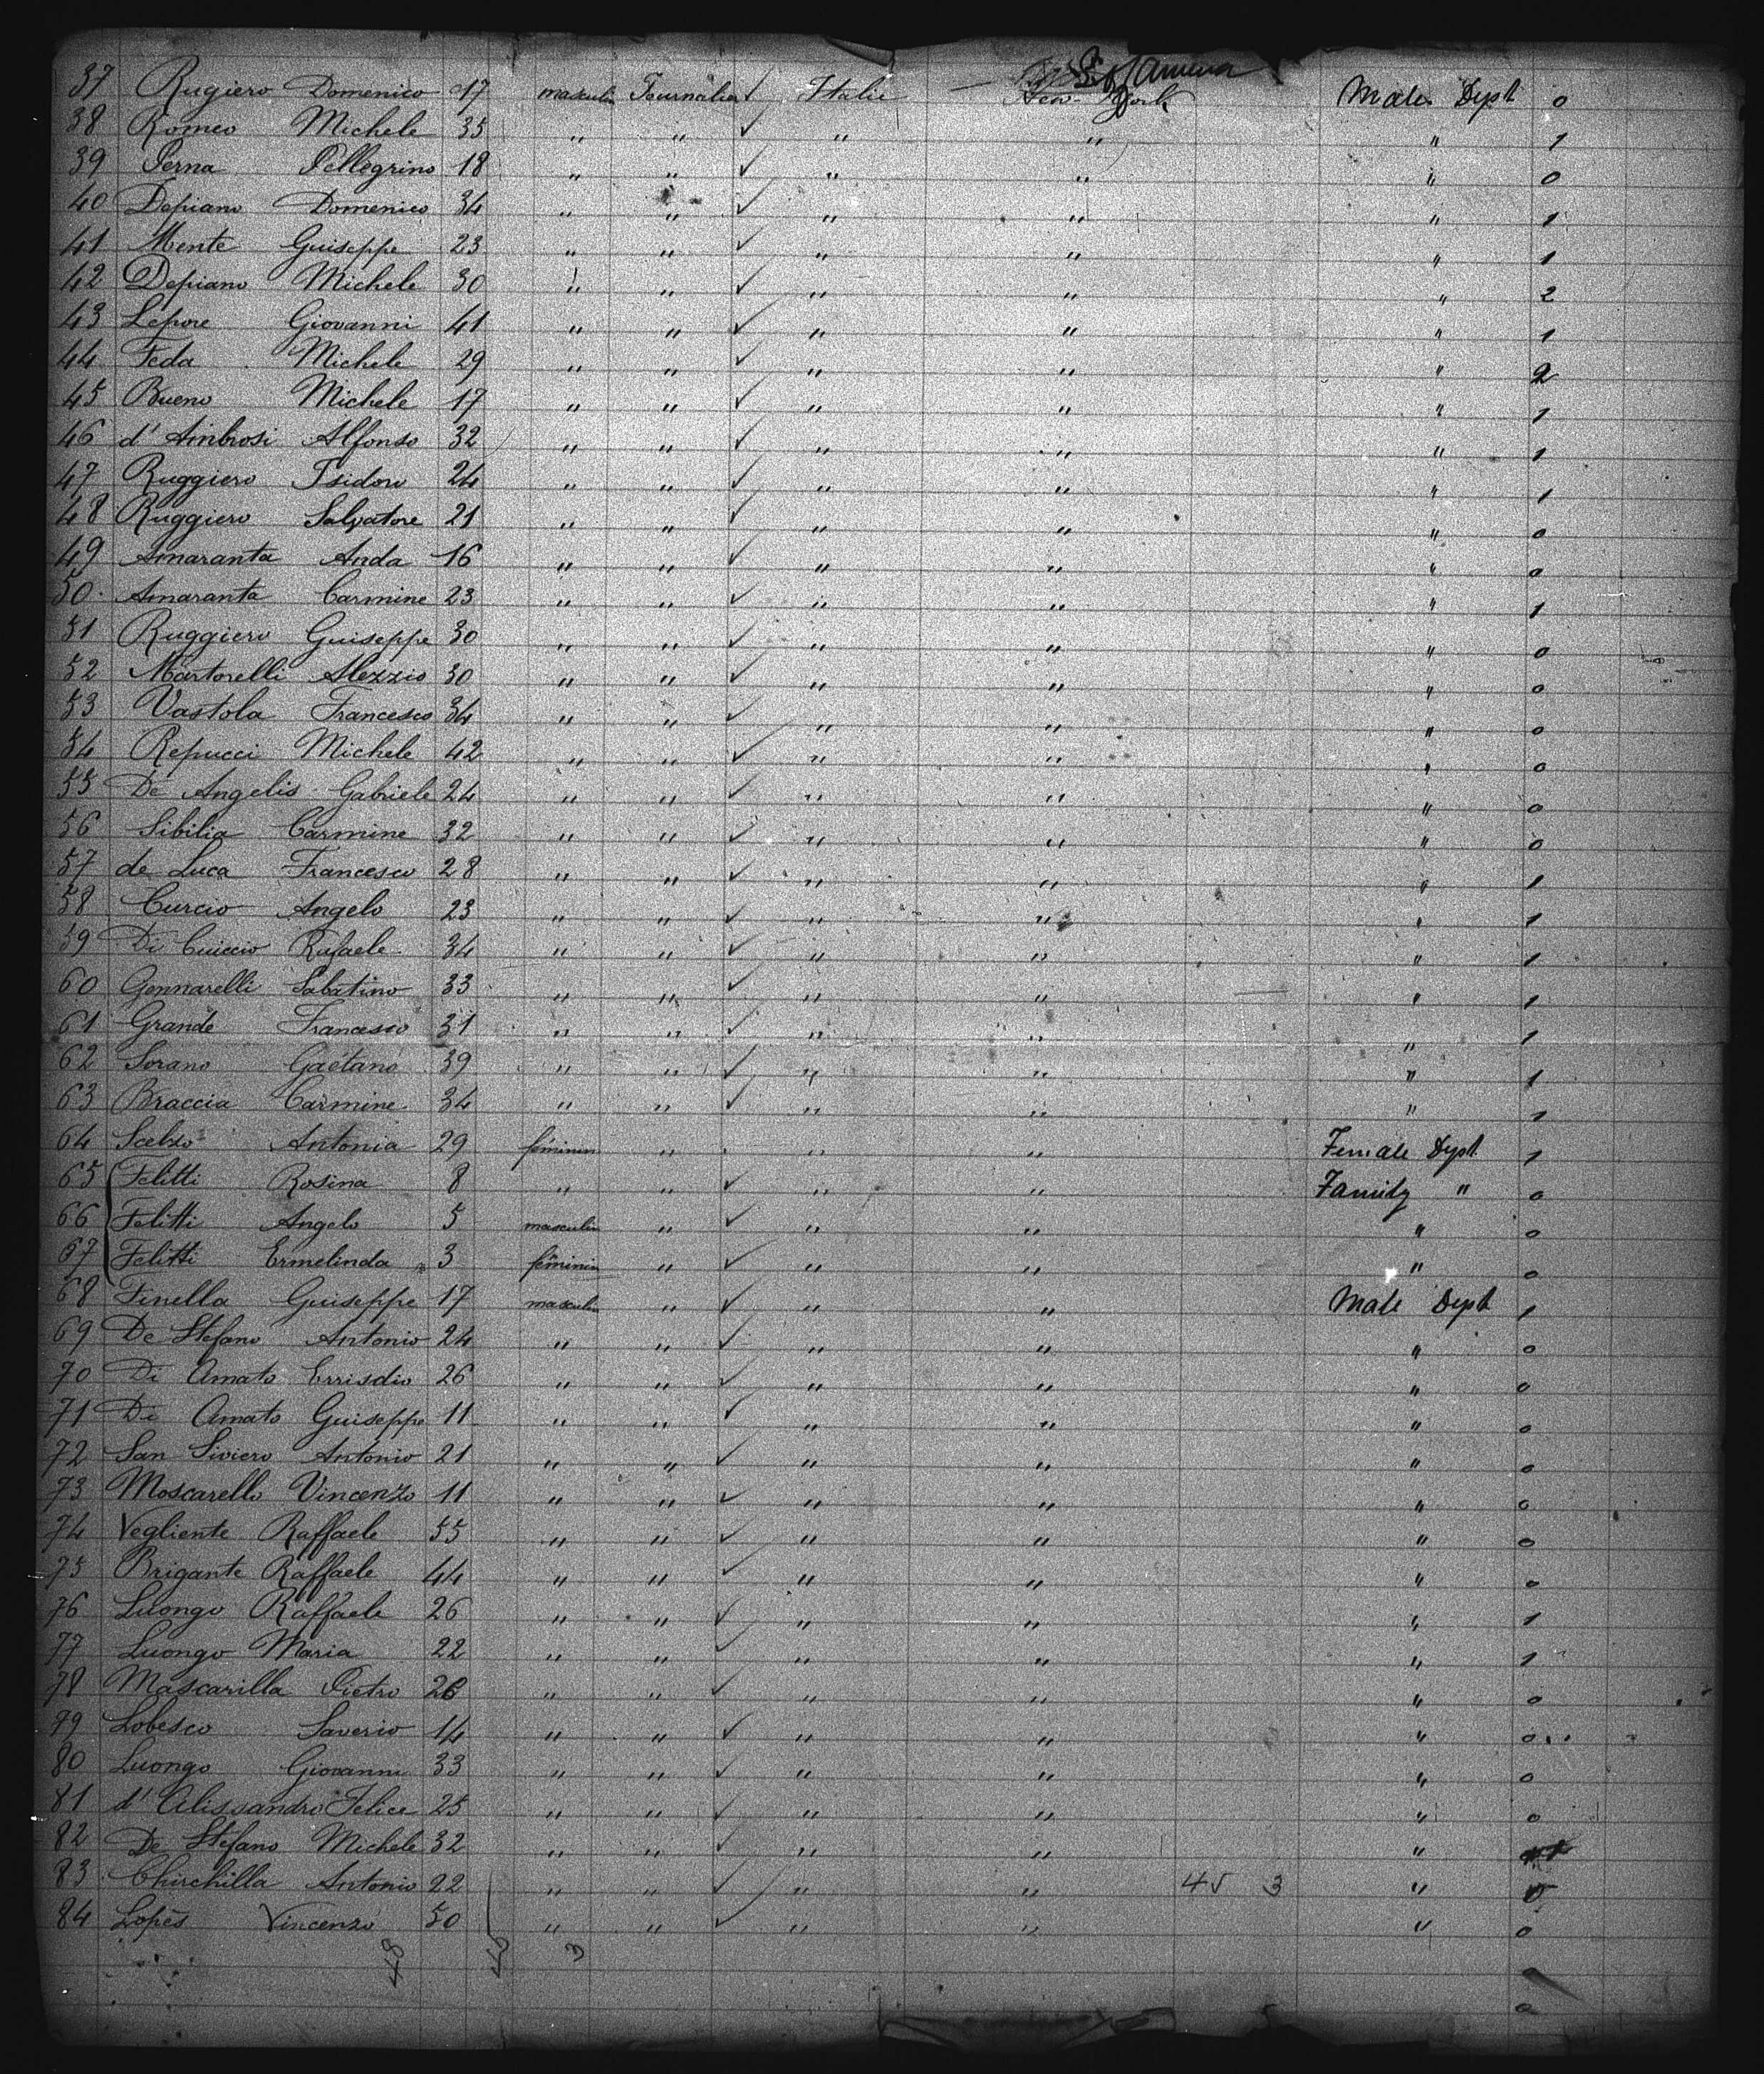 U.S. of America
37 Rugiero Domenico 17 masculin Journalier Italie New-York Male Dept 0
38 Romeo Michele 35 " " ✓ " " " 1
39 Perna Pellegrino 18 " " ✓ " " " 0
40 Depiano Domenico 34 " " ✓ " " " 1
41 Mente Guiseppe 23 " " ✓ " " " 1
42 Depiano Michele 30 " " ✓ " " " 2
43 Lepore Giovanni 41 " " ✓ " " " 1
44 Feda Michele 29 " " ✓ " " " 2
45 Bueno Michele 17 " " ✓ " " " 1
46 d'Ambrosi Alfonso 32 " " ✓ " " " 1
47 Ruggiero Isidoro 24 " " ✓ " " " 1
48 Ruggiero Salvatore 21 " " ✓ " " " 0
49 Amaranta Anda 16 " " ✓ " " " 0
50 Amaranta Carmine 23 " " ✓ " " " 1
51 Ruggiero Guiseppe 30 " " ✓ " " " 0
52 Martorelli Alezzio 30 " " ✓ " " " 0
53 Vastola Francesco 34 " " ✓ " " " 0
54 Repucci Michele 42 " " ✓ " " " 0
55 De Angelis Gabriele 24 " " ✓ " " " 0
56 Sibilia Carmine 32 " " ✓ " " " 0
57 de Luca Francesco 28 " " ✓ " " " 1
58 Curcio Angelo 23 " " ✓ " " " 1
59 Di Cuiccio Rafaele 34 " " ✓ " " " 1
60 Gennarelli Sabatino 33 " " ✓ " " " 1
61 Grande Francesco 31 " " ✓ " " " 1
62 Sorano Gaetano 39 " " ✓ " " " 1
63 Braccia Carmine 34 " " ✓ " " " 1
64 Scelzo Antonia 29 féminin " " " Female Dept 1
65 Felitti Rosina 8 " " ✓ " " Family " 0
66 Felitti Angelo 5 masculin " ✓ " " " 0
67 Felitti Ermelinda 3 féminin " ✓ " " " 0
68 Finella Guiseppe 17 masculin " ✓ " " Male Dept 1
69 De Stefano Antonio 24 " " ✓ " " " 0
70 Di Amato Errisdio 26 " " ✓ " " " 0
71 Di Amato Guiseppe 11 " " ✓ " " " 0
72 San Siviero Antonio 21 " " ✓ " " " 0
73 Moscarello Vincenzo 11 " " ✓ " " " 0
74 Vegliente Raffaele 55 " " ✓ " " " 0
75 Brigante Raffaele 44 " " ✓ " " " 0
76 Luongo Raffaele 26 " " ✓ " " " 1
77 Luongo Maria 22 " " ✓ " " " 1
78 Mascarilla Pietro 26 " " ✓ " " " 0
79 Lobesco Saverio 14 " " ✓ " " " 0
80 Luongo Giovanni 33 " " ✓ " " " 0
81 d'Alissandro Felice 25 " " ✓ " " " 0
82 De Stefano Michele 32 " " ✓ " " "
83 Chirchilla Antonio 22 " " ✓ " " 45 3 " 0
84 Lopes Vincenzo 50 " " ✓ " " " 0
48 45 3
0